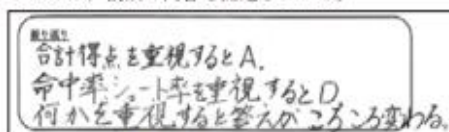 振り返り
合計得点を重視するとA.
命中率シュート率を重視するとD
何かを重視すると答えがころころ変わる。